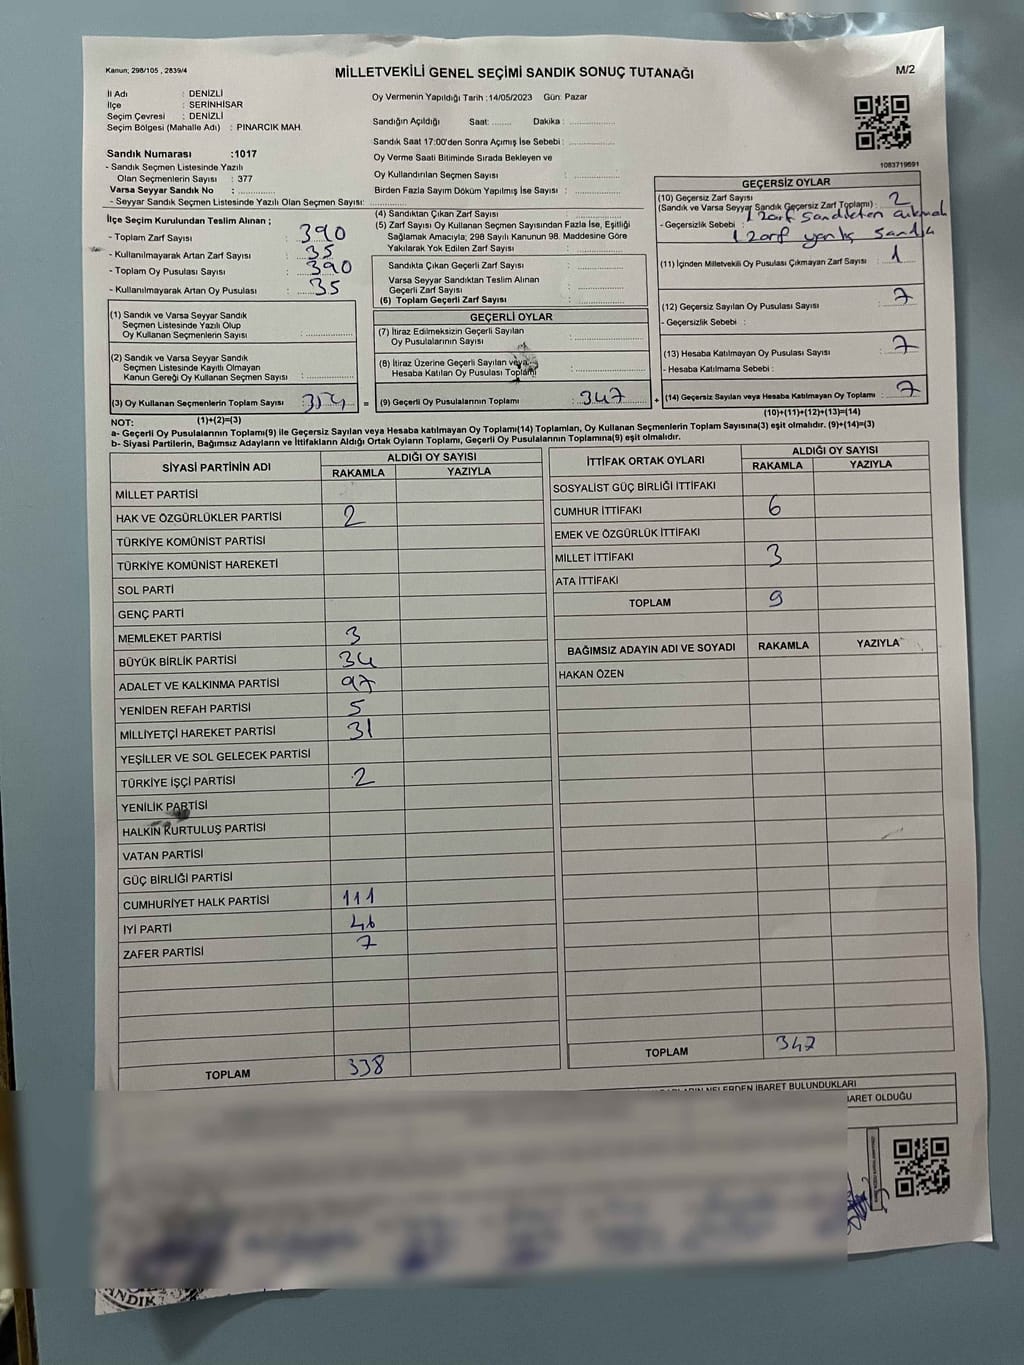 Kanun; 298/105 , 2839/4
MİLLETVEKİLİ GENEL SEÇİMİ SANDIK SONUÇ TUTANAĞI
M/2
İl Adı : DENİZLİ
İlçe : SERİNHİSAR
Seçim Çevresi : DENİZLİ
Seçim Bölgesi (Mahalle Adı) : PINARCIK MAH.
Sandık Numarası :1017
- Sandık Seçmen Listesinde Yazılı
Olan Seçmenlerin Sayısı : 377
Varsa Seyyar Sandık No : ............
- Seyyar Sandık Seçmen Listesinde Yazılı Olan Seçmen Sayısı: ............
Oy Vermenin Yapıldığı Tarih :14/05/2023 Gün: Pazar
Sandığın Açıldığı Saat: ....... Dakika : ............
Sandık Saat 17:00'den Sonra Açılmış İse Sebebi : ............
Oy Verme Saati Bitiminde Sırada Bekleyen ve
Oy Kullandırılan Seçmen Sayısı : ............
Birden Fazla Sayım Döküm Yapılmış İse Sayısı : ............
1083719691
İlçe Seçim Kurulundan Teslim Alınan ;
- Toplam Zarf Sayısı : 390
- Kullanılmayarak Artan Zarf Sayısı : 35
- Toplam Oy Pusulası Sayısı : 390
- Kullanılmayarak Artan Oy Pusulası : 35
(1) Sandık ve Varsa Seyyar Sandık
Seçmen Listesinde Yazılı Olup
Oy Kullanan Seçmenlerin Sayısı : ............
(2) Sandık ve Varsa Seyyar Sandık
Seçmen Listesinde Kayıtlı Olmayan
Kanun Gereği Oy Kullanan Seçmen Sayısı : ............
(3) Oy Kullanan Seçmenlerin Toplam Sayısı : 354 =
(4) Sandıktan Çıkan Zarf Sayısı : ............
(5) Zarf Sayısı Oy Kullanan Seçmen Sayısından Fazla İse, Eşitliği
Sağlamak Amacıyla; 298 Sayılı Kanunun 98. Maddesine Göre
Yakılarak Yok Edilen Zarf Sayısı : ............
Sandıkta Çıkan Geçerli Zarf Sayısı : ............
Varsa Seyyar Sandıktan Teslim Alınan
Geçerli Zarf Sayısı : ............
(6) Toplam Geçerli Zarf Sayısı : ............
GEÇERLİ OYLAR
(7) İtiraz Edilmeksizin Geçerli Sayılan
Oy Pusulalarının Sayısı : ............
(8) İtiraz Üzerine Geçerli Sayılan veya
Hesaba Katılan Oy Pusulası Toplamı : ............
(9) Geçerli Oy Pusulalarının Toplamı : 347 +
GEÇERSİZ OYLAR
(10) Geçersiz Zarf Sayısı
(Sandık ve Varsa Seyyar Sandık Geçersiz Zarf Toplamı) : 2
- Geçersizlik Sebebi : 1 zarf sandıkten
1 zarf yanlış sandık
(11) İçinden Milletvekili Oy Pusulası Çıkmayan Zarf Sayısı : 1
(12) Geçersiz Sayılan Oy Pusulası Sayısı : 7
- Geçersizlik Sebebi :
(13) Hesaba Katılmayan Oy Pusulası Sayısı : 7
- Hesaba Katılmama Sebebi :
(14) Geçersiz Sayılan veya Hesaba Katılmayan Oy Toplamı : 7
NOT: (1)+(2)=(3) (10)+(11)+(12)+(13)=(14)
a- Geçerli Oy Pusulalarının Toplamı(9) ile Geçersiz Sayılan veya Hesaba katılmayan Oy Toplamı(14) Toplamları, Oy Kullanan Seçmenlerin Toplam Sayısına(3) eşit olmalıdır. (9)+(14)=(3)
b- Siyasi Partilerin, Bağımsız Adayların ve İttifakların Aldığı Ortak Oyların Toplamı, Geçerli Oy Pusulalarının Toplamına(9) eşit olmalıdır.
SİYASİ PARTİNİN ADI ALDIĞI OY SAYISI
RAKAMLA YAZIYLA
MİLLET PARTİSİ
HAK VE ÖZGÜRLÜKLER PARTİSİ 2
TÜRKİYE KOMÜNİST PARTİSİ
TÜRKİYE KOMÜNİST HAREKETİ
SOL PARTİ
GENÇ PARTİ
MEMLEKET PARTİSİ 3
BÜYÜK BİRLİK PARTİSİ 34
ADALET VE KALKINMA PARTİSİ 97
YENİDEN REFAH PARTİSİ 5
MİLLİYETÇİ HAREKET PARTİSİ 31
YEŞİLLER VE SOL GELECEK PARTİSİ
TÜRKİYE İŞÇİ PARTİSİ 2
YENİLİK PARTİSİ
HALKIN KURTULUŞ PARTİSİ
VATAN PARTİSİ
GÜÇ BİRLİĞİ PARTİSİ
CUMHURİYET HALK PARTİSİ 111
İYİ PARTİ 46
ZAFER PARTİSİ 7
TOPLAM 338
İTTİFAK ORTAK OYLARI ALDIĞI OY SAYISI
RAKAMLA YAZIYLA
SOSYALİST GÜÇ BİRLİĞİ İTTİFAKI
CUMHUR İTTİFAKI 6
EMEK VE ÖZGÜRLÜK İTTİFAKI
MİLLET İTTİFAKI 3
ATA İTTİFAKI
TOPLAM 9
BAĞIMSIZ ADAYIN ADI VE SOYADI RAKAMLA YAZIYLA
HAKAN ÖZEN
TOPLAM 347
NELERDEN İBARET BULUNDUKLARI
İBARET OLDUĞU
SANDIK